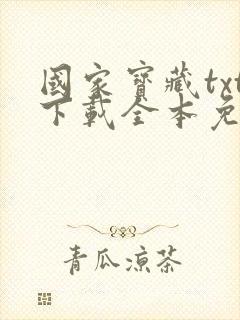 國家寶藏txt
下載全本免
青瓜涼茶